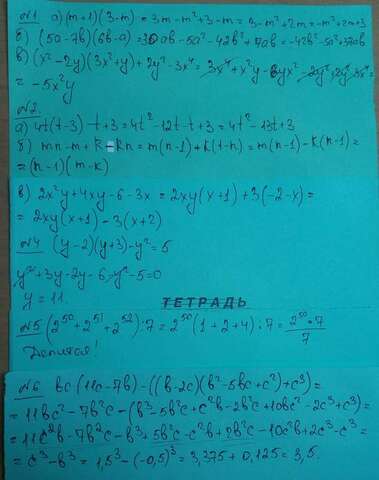 №1 а) (m+1)(3-m) = 3m-m²+3-m = 3-m²+2m = -m²+2m+3
б) (5a-7b)(6b-a) = 30ab-5a²-42b²+7ab = -42b²-5a²+37ab
в) (x²-2y)(3x²+y)+2y²-3x⁴ = 3x⁴+x²y-6yx²-2y²+2y²-3x⁴ =
= -5x²y
№2.
а) 4t(t-3)-t+3 = 4t²-12t-t+3 = 4t²-13t+3
б) mn-m+k-kn = m(n-1)+k(1-n) = m(n-1)-k(n-1) =
= (n-1)(m-k)
в) 2x²y+4xy-6-3x = 2xy(x+1)+3(-2-x) =
= 2xy(x+1)-3(x+2)
№4 (y-2)(y+3)-y² = 5
y²+3y-2y-6-y²-5=0
y = 11.
ТЕТРАДЬ
№5 (2⁵⁰+2⁵¹+2⁵²):7 = 2⁵⁰(1+2+4):7 = 2⁵⁰·7/7
Делится!
№6 bc(11c-7b)-((b-2c)(b²-5bc+c²)+c³) =
= 11bc²-7b²c-(b³-5b²c+c²b-2b²c+10bc²-2c³+c³) =
= 11c²b-7b²c-b³+5b²c-c²b+2b²c-10c²b+2c³-c³ =
= c³-b³ = 1,5³-(-0,5)³ = 3,375+0,125 = 3,5.